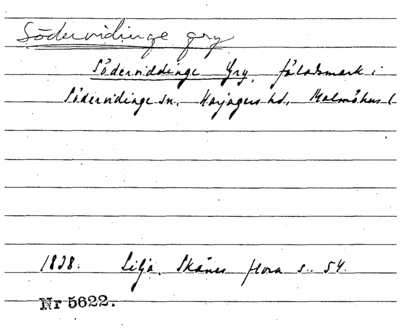 Södervidinge gry
Söderviddinge Gry, fäladsmark i
Södervidinge sn. Harjagers hd, Malmöhus l
1838. Lilja. Skånes flora s. 54.
Nr 5622.